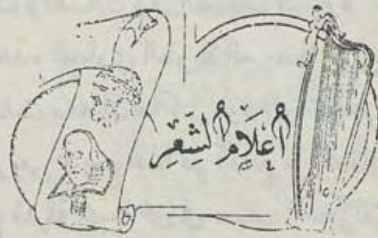 أَعْلَامُ الشِّعْرِ